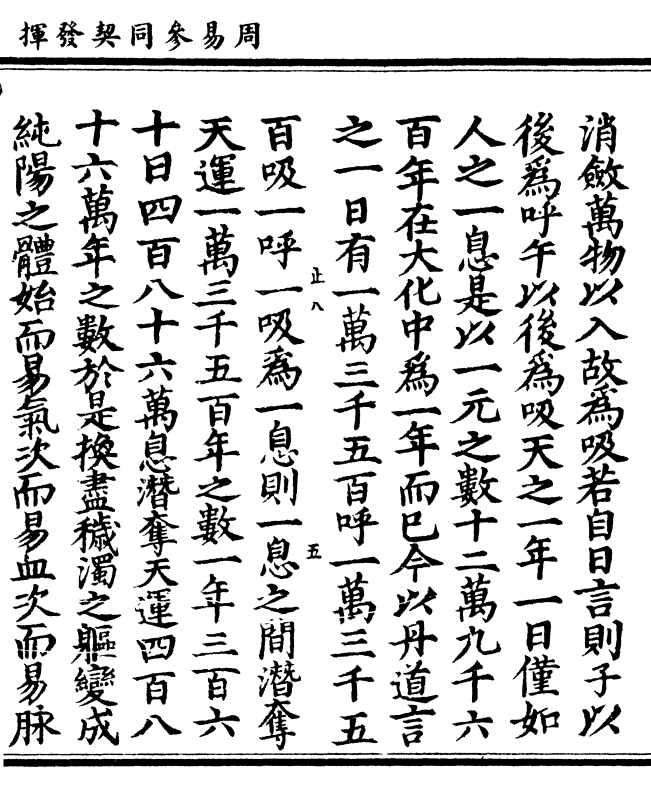 周易參同契發揮
消斂萬物以入故爲吸若自日言則子以
後爲呼午以後爲吸天之一年一日僅如
人之一息是以一元之數十二萬九千六
百年在大化中爲一年而已今以丹道言
之一日有一萬三千五百呼一萬三千五
百吸一呼一吸爲一息則一息之間潛奪
正八
五
天運一萬三千五百年之數一年三百六
十日四百八十六萬息潛奪天運四百八
十六萬年之數於是換盡穢濁之軀變成
純陽之體始而易氣次而易血次而易脉